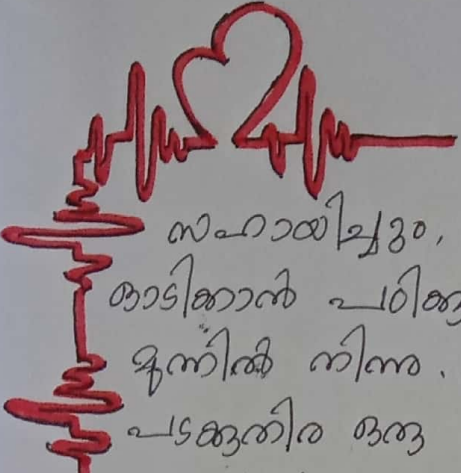 സഹായിച്ചും,
ഓടിക്കാൻ പഠിക്കു
മുന്നിൽ നിന്നു.
പടക്കുതിര ഒരു